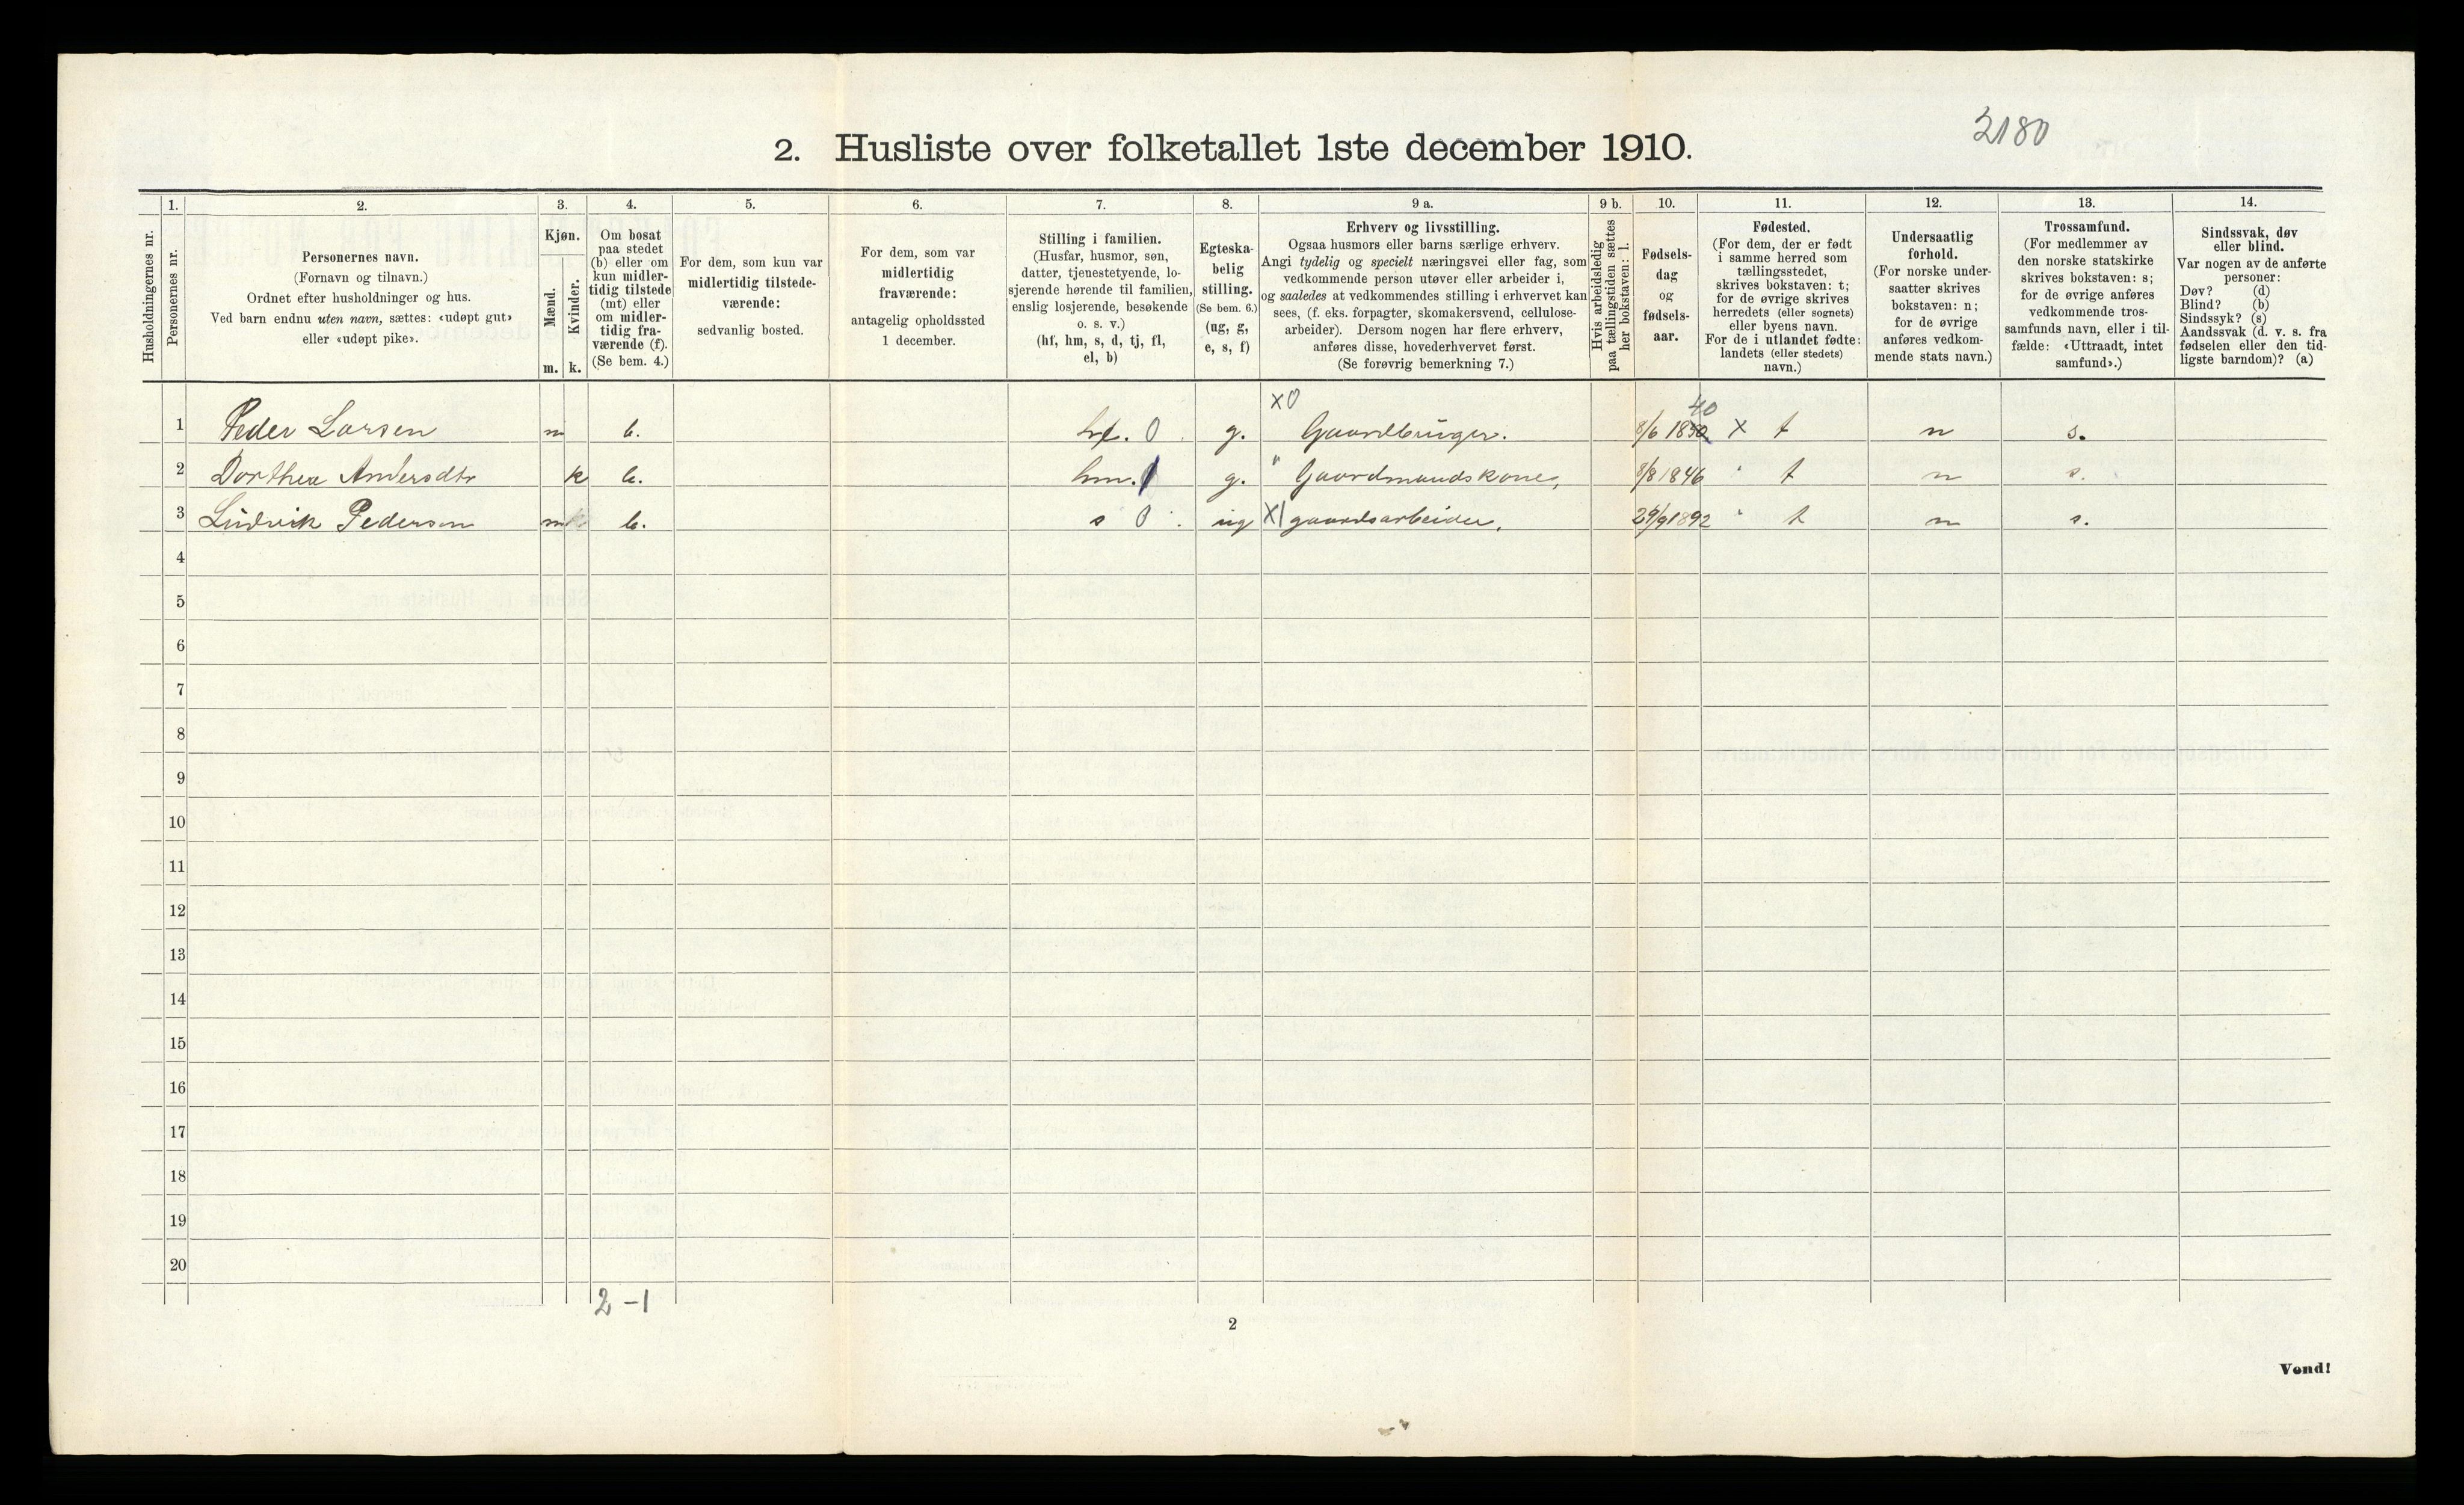 3180
2. Husliste over folketallet 1ste december 1910.
Husholdningernes nr.
1.
Personernes nr.
2.
Personernes navn.
(Fornavn og tilnavn.)
Ordnet efter husholdninger og hus.
Ved barn endnu uten navn, sættes: «udøpt gut»
eller «udøpt pike».
3.
Kjøn.
Mænd.
Kvinder.
m. k.
4.
Om bosat
paa stedet
(b) eller om
kun midler-
tidig tilstede
(mt) eller
om midler-
tidig fra-
værende (f).
(Se bem. 4.)
5.
For dem, som kun var
midlertidig tilstede-
værende:
sedvanlig bosted.
6.
For dem, som var
midlertidig
fraværende:
antagelig opholdssted
1 december.
7.
Stilling i familien.
(Husfar, husmor, søn,
datter, tjenestetyende, lo-
sjerende hørende til familien,
enslig losjerende, besøkende
o. s. v.)
(hf, hm, s, d, tj, fl,
el, b)
8.
Egteska-
belig
stilling.
(Se bem. 6.)
(ug, g,
e, s, f)
9 a.
Erhverv og livsstilling.
Ogsaa husmors eller barns særlige erhverv.
Angi tydelig og specielt næringsvei eller fag, som
vedkommende person utøver eller arbeider i,
og saaledes at vedkommendes stilling i erhvervet kan
sees, (f. eks. forpagter, skomakersvend, cellulose-
arbeider). Dersom nogen har flere erhverv,
anføres disse, hovederhvervet først.
(Se forøvrig bemerkning 7.)
9 b.
Hvis arbeidsledig
paa tællingstiden sættes
her bokstaven: l.
10.
Fødsels-
dag
og
fødsels-
aar.
11.
Fødested.
(For dem, der er født
i samme herred som
tællingsstedet,
skrives bokstaven: t;
for de øvrige skrives
herredets (eller sognets)
eller byens navn.
For de i utlandet fødte:
landets (eller stedets)
navn.)
12.
Undersaatlig
forhold.
(For norske under-
saatter skrives
bokstaven: n;
for de øvrige
anføres vedkom-
mende stats navn.)
13.
Trossamfund.
(For medlemmer av
den norske statskirke
skrives bokstaven: s;
for de øvrige anføres
vedkommende tros-
samfunds navn, eller i til-
fælde: «Uttraadt, intet
samfund».)
14.
Sindssvak, døv
eller blind.
Var nogen av de anførte
personer:
Døv? (d)
Blind? (b)
Sindssyk? (s)
Aandssvak (d. v. s. fra
fødselen eller den tid-
ligste barndom)? (a)
X0 40
1 Peder Larsen m b. hf. 0 g. Gaardbruger. 8/6 1850 X t n s.
2 Dorthea Andersdtr k b. hm. 0 g. " Gaardmandskone, 8/8 1846 " t n s.
3 Ludvik Pedersen m b. s 0 ug X1 gaardsarbeider, 29/9 1892 " t n s.
4
5
6
7
8
9
10
11
12
13
14
15
16
17
18
19
20
2-1
2
Vend!